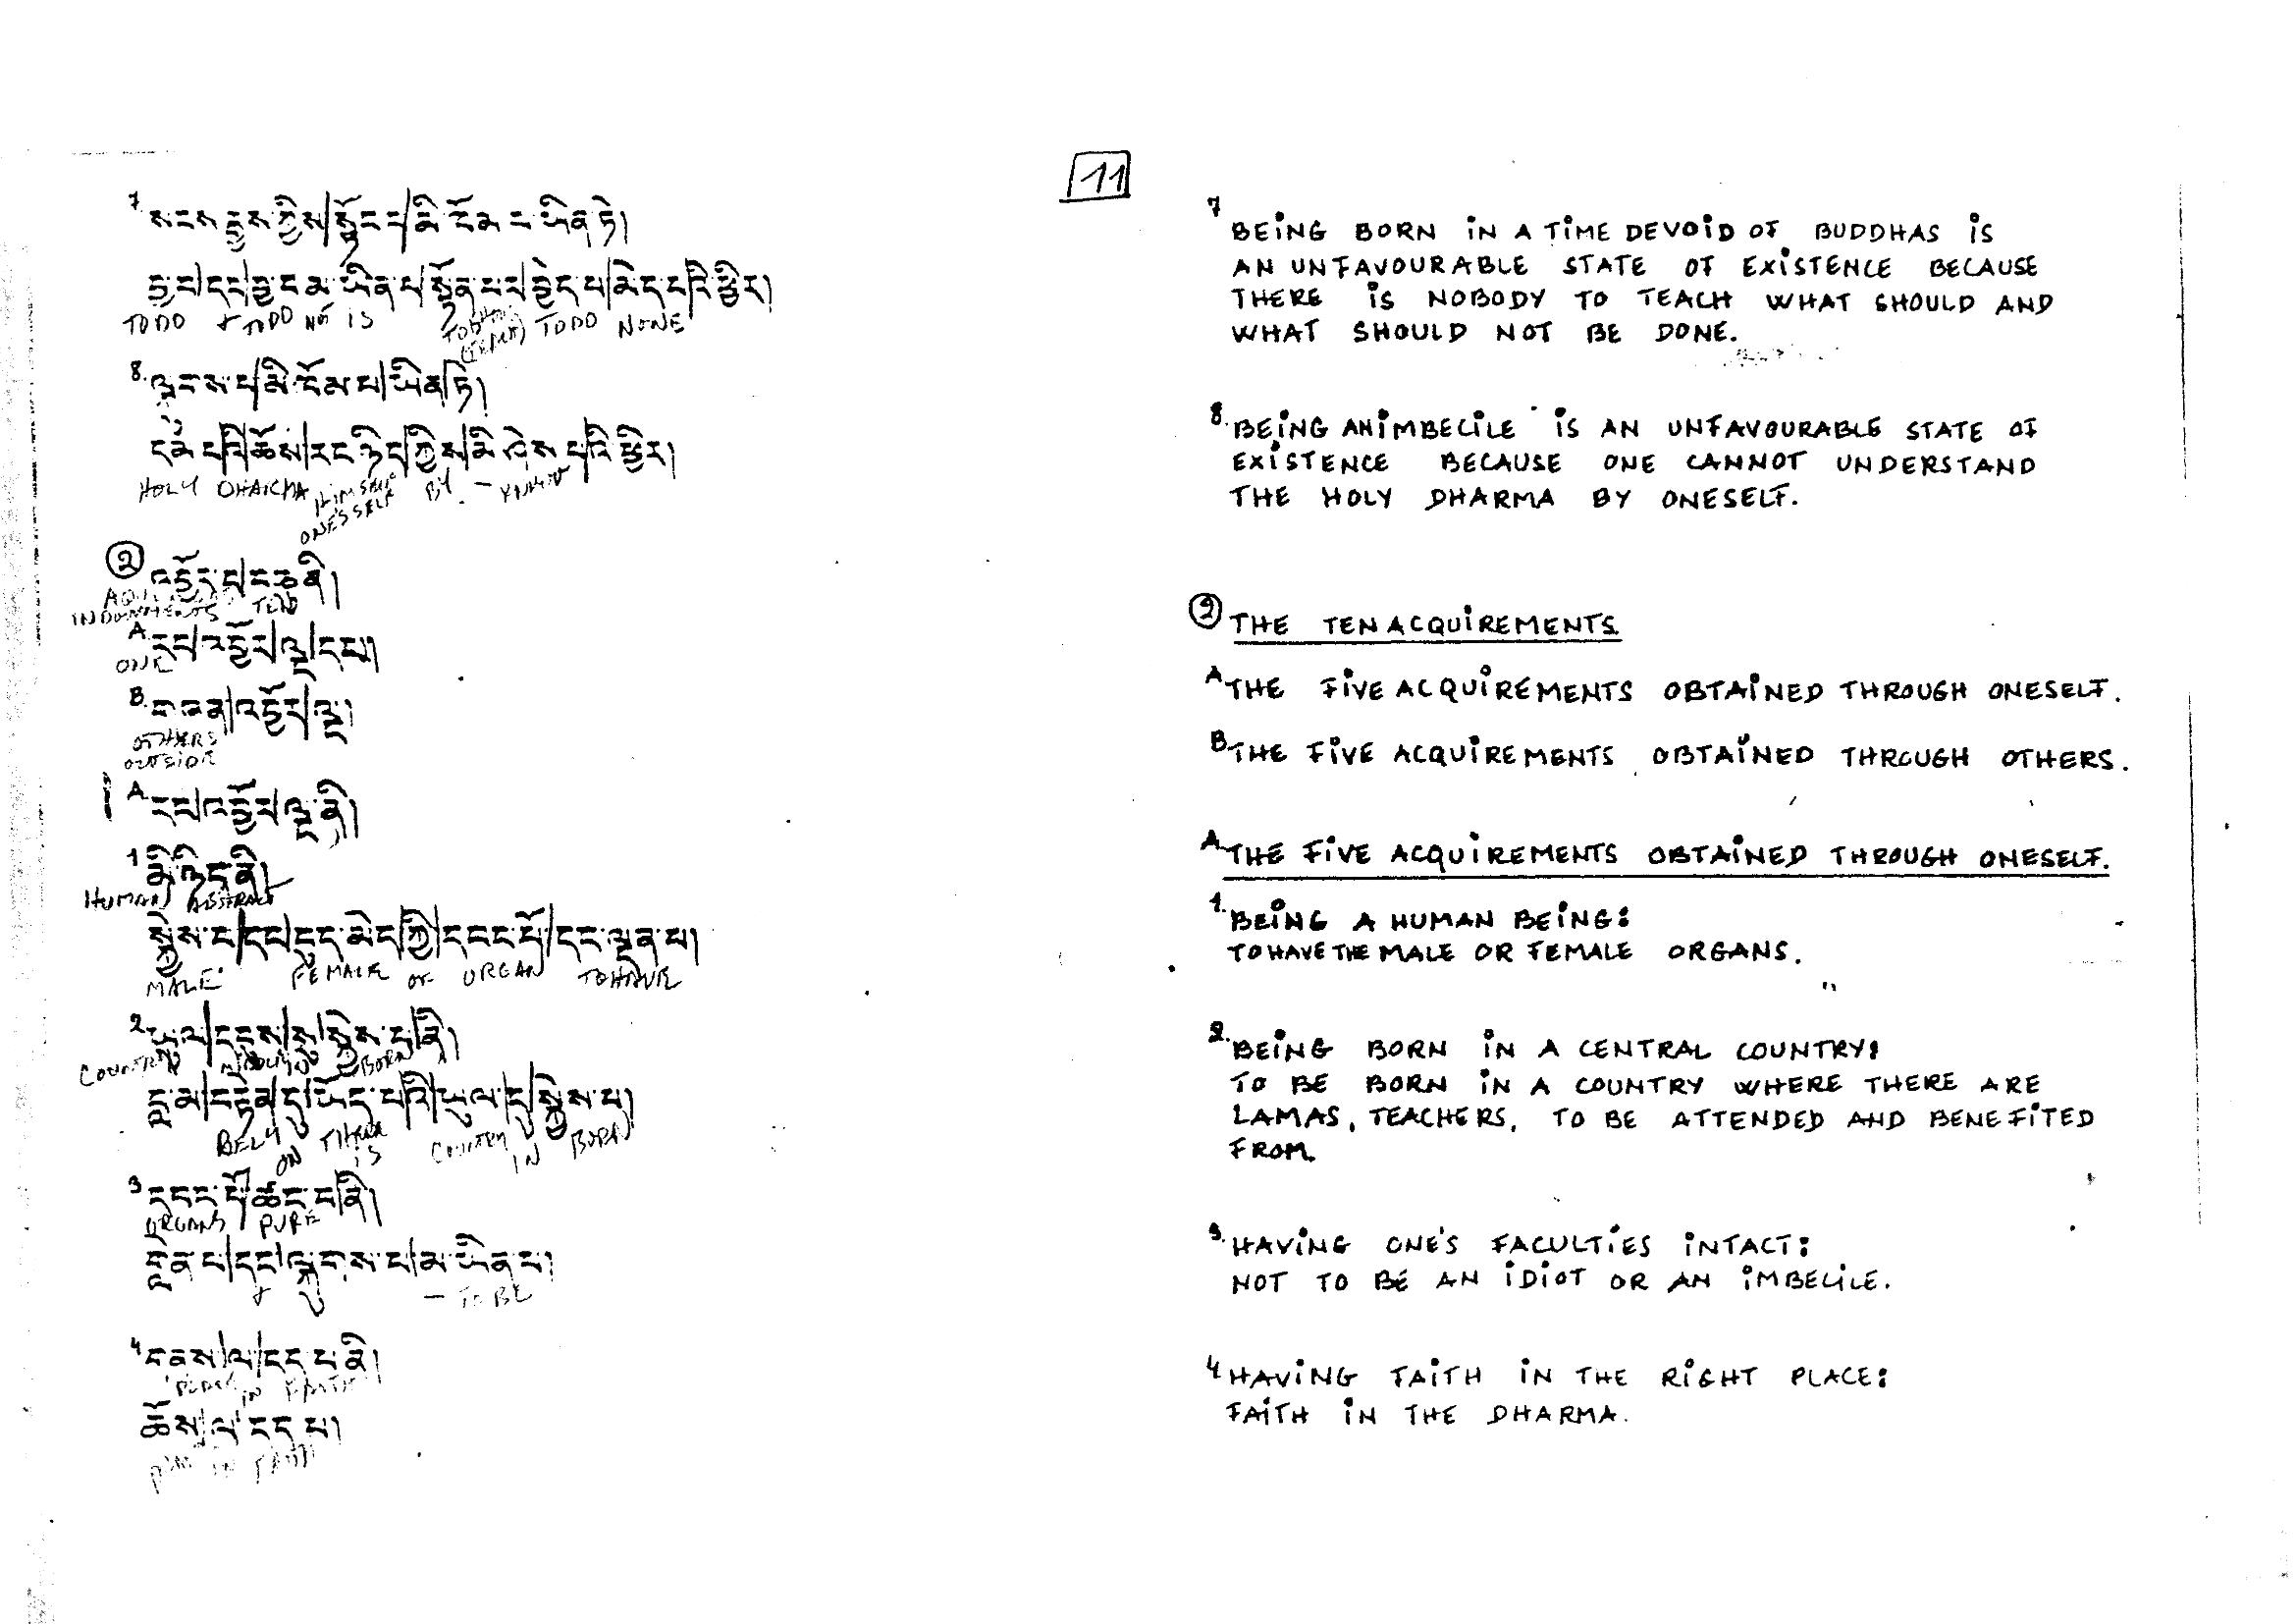 11
7 སངས་རྒྱས་ཀྱིས་སྟོང་པ་མི་ཁོམ་པ་ཡིན་ཏེ།
བྱ་བ་དང་བྱ་བ་མ་ཡིན་པ་སྟོན་པར་བྱེད་པ་མེད་པའི་ཕྱིར།
TO DO + TO DO NOT IS TO DO NONE
8. ལྐུགས་པ་མི་ཁོམ་པ་ཡིན་ཏེ།
དམ་པའི་ཆོས་རང་ཉིད་ཀྱིས་མི་ཤེས་པའི་ཕྱིར།
HOLY DHARMA HIMSELF BY. – KNOW
ONE'S SELF
② འབྱོར་པ་བཅུ་ནི།
INDOWMENTS TEN
A རང་འབྱོར་ལྔ་དང་།
ONE
B. གཞན་འབྱོར་ལྔ།
OTHERS
OUTSIDE
A རང་འབྱོར་ལྔ་ནི།
1 མི་ཉིད་ནི།
HUMAN ABSTRACT
སྐྱེས་པ་དང་བུད་མེད་ཀྱི་དབང་པོ་དང་ལྡན་པ།
MALE FEMALE OF ORGAN TO HAVE
2 ཡུལ་དབུས་སུ་སྐྱེས་པ་ནི།
COUNTRY MIDDLE IN BORN
བླ་མ་བརྟེན་དུ་ཡོད་པའི་ཡུལ་དུ་སྐྱེས་པ།
RELY ON THERE IS COUNTRY IN BORN
3 དབང་པོ་ཚང་བ་ནི།
ORGANS PURE
གླེན་པ་དང་ལྐུགས་པ་མ་ཡིན་པ།
+ – TO BE
4 གནས་ལ་དད་པ་ནི།
PLACE IN FAITH
ཆོས་ལ་དད་པ།
IN FAITH
7 BEING BORN IN A TIME DEVOID OF BUDDHAS IS
AN UNFAVOURABLE STATE OF EXISTENCE BECAUSE
THERE IS NOBODY TO TEACH WHAT SHOULD AND
WHAT SHOULD NOT BE DONE.
8. BEING AN IMBECILE IS AN UNFAVOURABLE STATE OF
EXISTENCE BECAUSE ONE CANNOT UNDERSTAND
THE HOLY DHARMA BY ONESELF.
② THE TEN ACQUIREMENTS
A THE FIVE ACQUIREMENTS OBTAINED THROUGH ONESELF.
B THE FIVE ACQUIREMENTS OBTAINED THROUGH OTHERS.
A THE FIVE ACQUIREMENTS OBTAINED THROUGH ONESELF.
1. BEING A HUMAN BEING:
TO HAVE THE MALE OR FEMALE ORGANS.
2. BEING BORN IN A CENTRAL COUNTRY:
TO BE BORN IN A COUNTRY WHERE THERE ARE
LAMAS, TEACHERS, TO BE ATTENDED AND BENEFITED
FROM.
3. HAVING ONE'S FACULTIES INTACT:
NOT TO BE AN IDIOT OR AN IMBECILE.
4 HAVING FAITH IN THE RIGHT PLACE:
FAITH IN THE DHARMA.